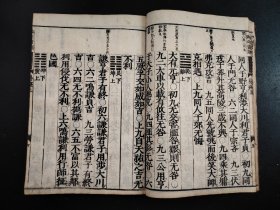 同人于野亨利涉大川利君子貞 初九同
人于門无咎 六二同人于宗吝 九三伏
戎于莽升其高陵三歲不興 九四乘其墉
弗克攻吉 九五同人先號咷而後笑大師
克相遇 上九同人于郊无悔
大有元亨 初九无交害匪咎艱則无咎
九二大車以載有攸往无咎 九三公用亨
于天子小人弗克 九四匪其彭无咎 六
五厥孚交如威如吉 上九自天祐之吉无
不利
謙亨君子有終 初六謙謙君子用涉大川
吉 六二鳴謙貞吉 九三勞謙君子有終
吉 六四无不利撝謙 六五不富以其鄰
利用侵伐无不利 上六鳴謙利用行師征
邑國